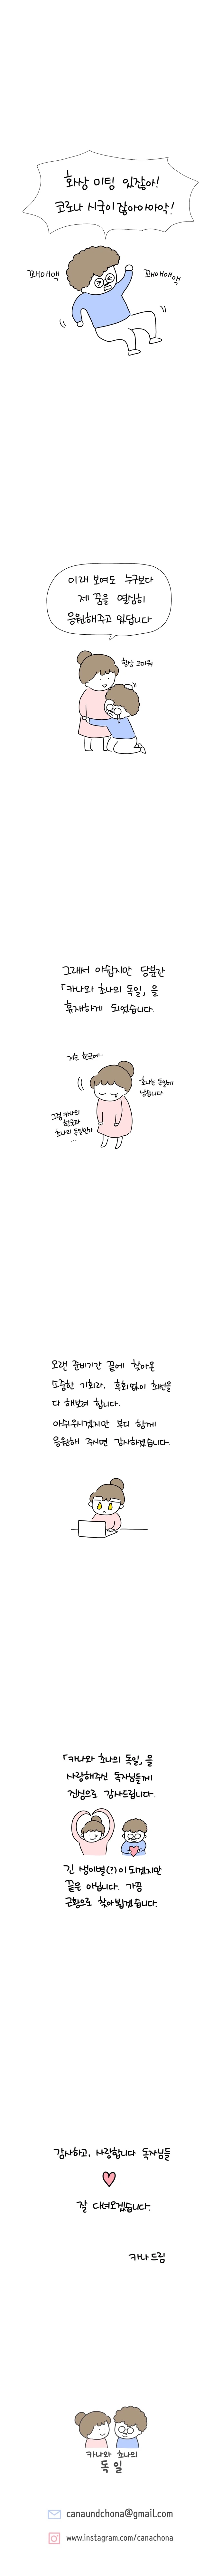 화상 미팅 있잖아!
코로나 시국이잖아아아악!
꽤애애액
꽤애애애액
이래 보여도 누구보다
제 꿈을 열심히
응원해주고 있답니다
항상 고마워
그래서 아쉽지만 당분간
「카나와 초나의 독일」을
휴재하게 되었습니다.
저는 한국에..
초나는 독일에
남습니다
그럼 카나의
한국과
초나의 독일인가
...
오랜 준비기간 끝에 찾아온
소중한 기회라, 후회없이 최선을
다 해보려 합니다.
아쉬우시겠지만 부디 함께
응원해 주시면 감사하겠습니다.
「카나와 초나의 독일」을
사랑해주신 독자님들께
진심으로 감사드립니다.
긴 생이별(?)이 되겠지만
끝은 아닙니다. 가끔
근황으로 찾아뵙겠습니다.
감사하고, 사랑합니다 독자님들
잘 다녀오겠습니다.
카나 드림
카나와 초나의
독일
canaundchona@gmail.com
www.instagram.com/canachona